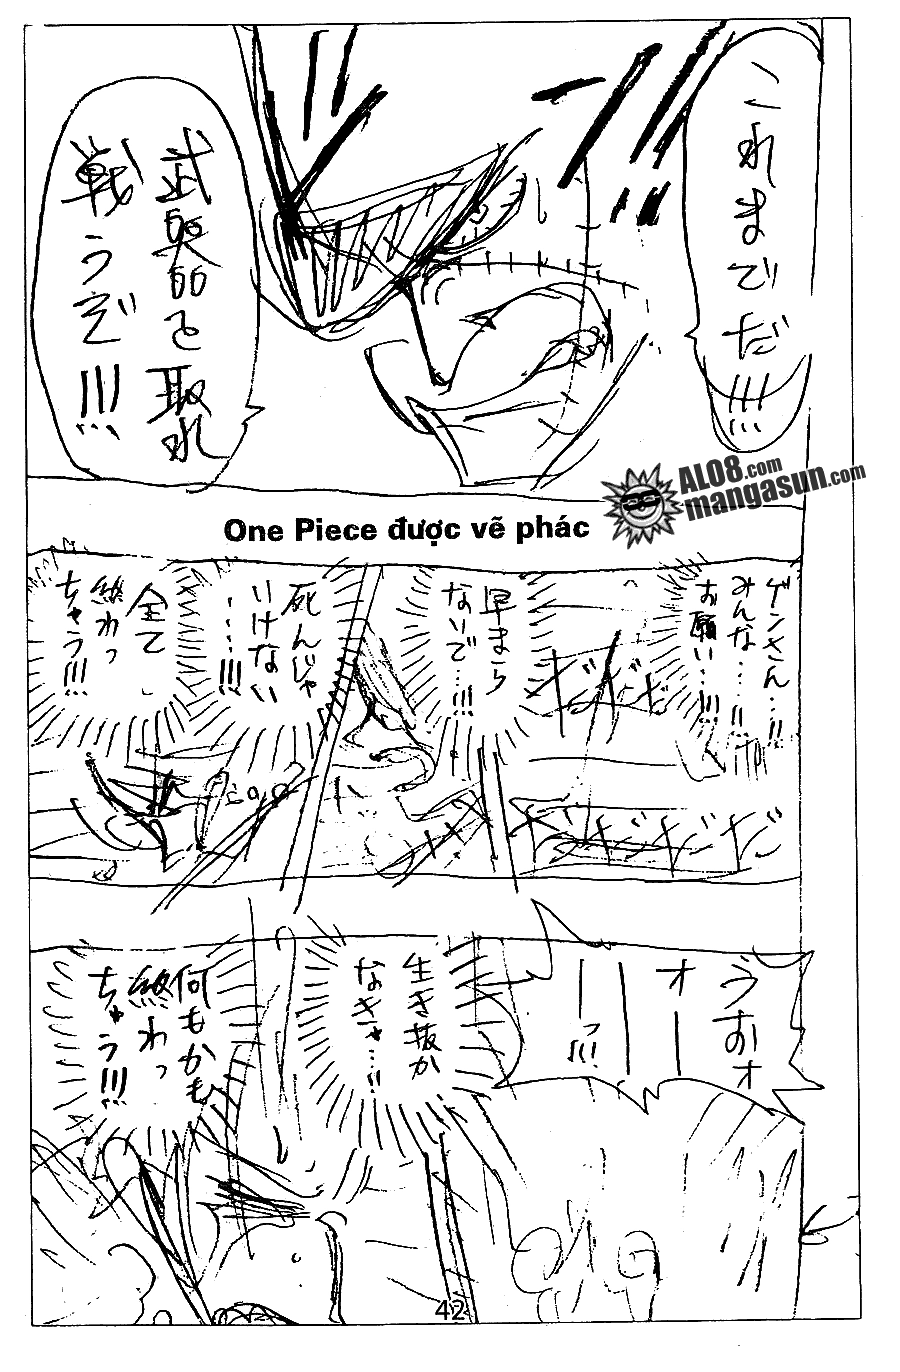 これまでだ!!!
武器を取れ
戦うぞ!!!
AL08.com
mangasun.com
One Piece được vẽ phác
ゲンさん…!!
みんな…!!
お願い…!!!
早まら
ないで…!!!
死んじゃ
いけない
…!!!
全て
終わっ
ちゃう!!!
ドドド
ドドドドド
うおォ
オー
ーーっ!!!
生き抜か
なきゃ…!!
何もかも
終わっ
ちゃう!!!
42